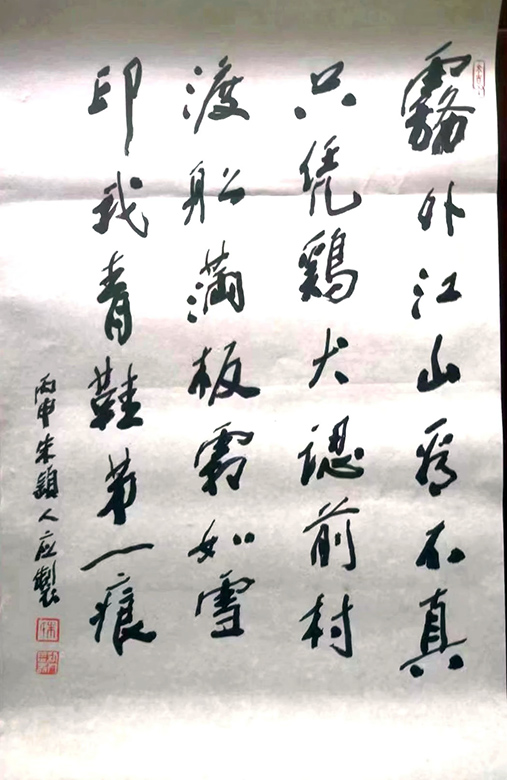 霧外江山看不真
只凭鷄犬認前村
渡船滿板霜如雪
印我青鞋第一痕
丙申朱頴人应製